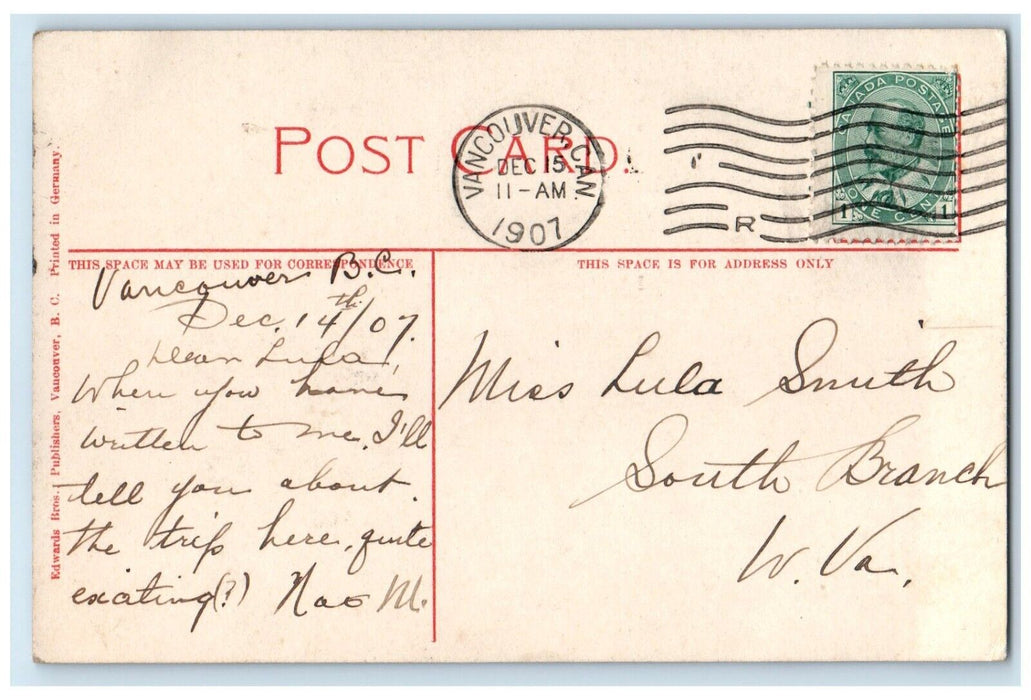 POST CARD.
VANCOUVER, CAN.
DEC 15
11-AM
1907
R
CANADA POSTAGE
1 ONE CENT 1
THIS SPACE MAY BE USED FOR CORRESPONDENCE
THIS SPACE IS FOR ADDRESS ONLY
Edwards Bros., Publishers, Vancouver, B. C. Printed in Germany.
Vancouver B.C.
Dec. 14th/07.
Dear Lula,
When you have
written to me, I'll
tell you about
the trip here, quite
exciting(?) M.
Miss Lula Smith
South Branch
W. Va.